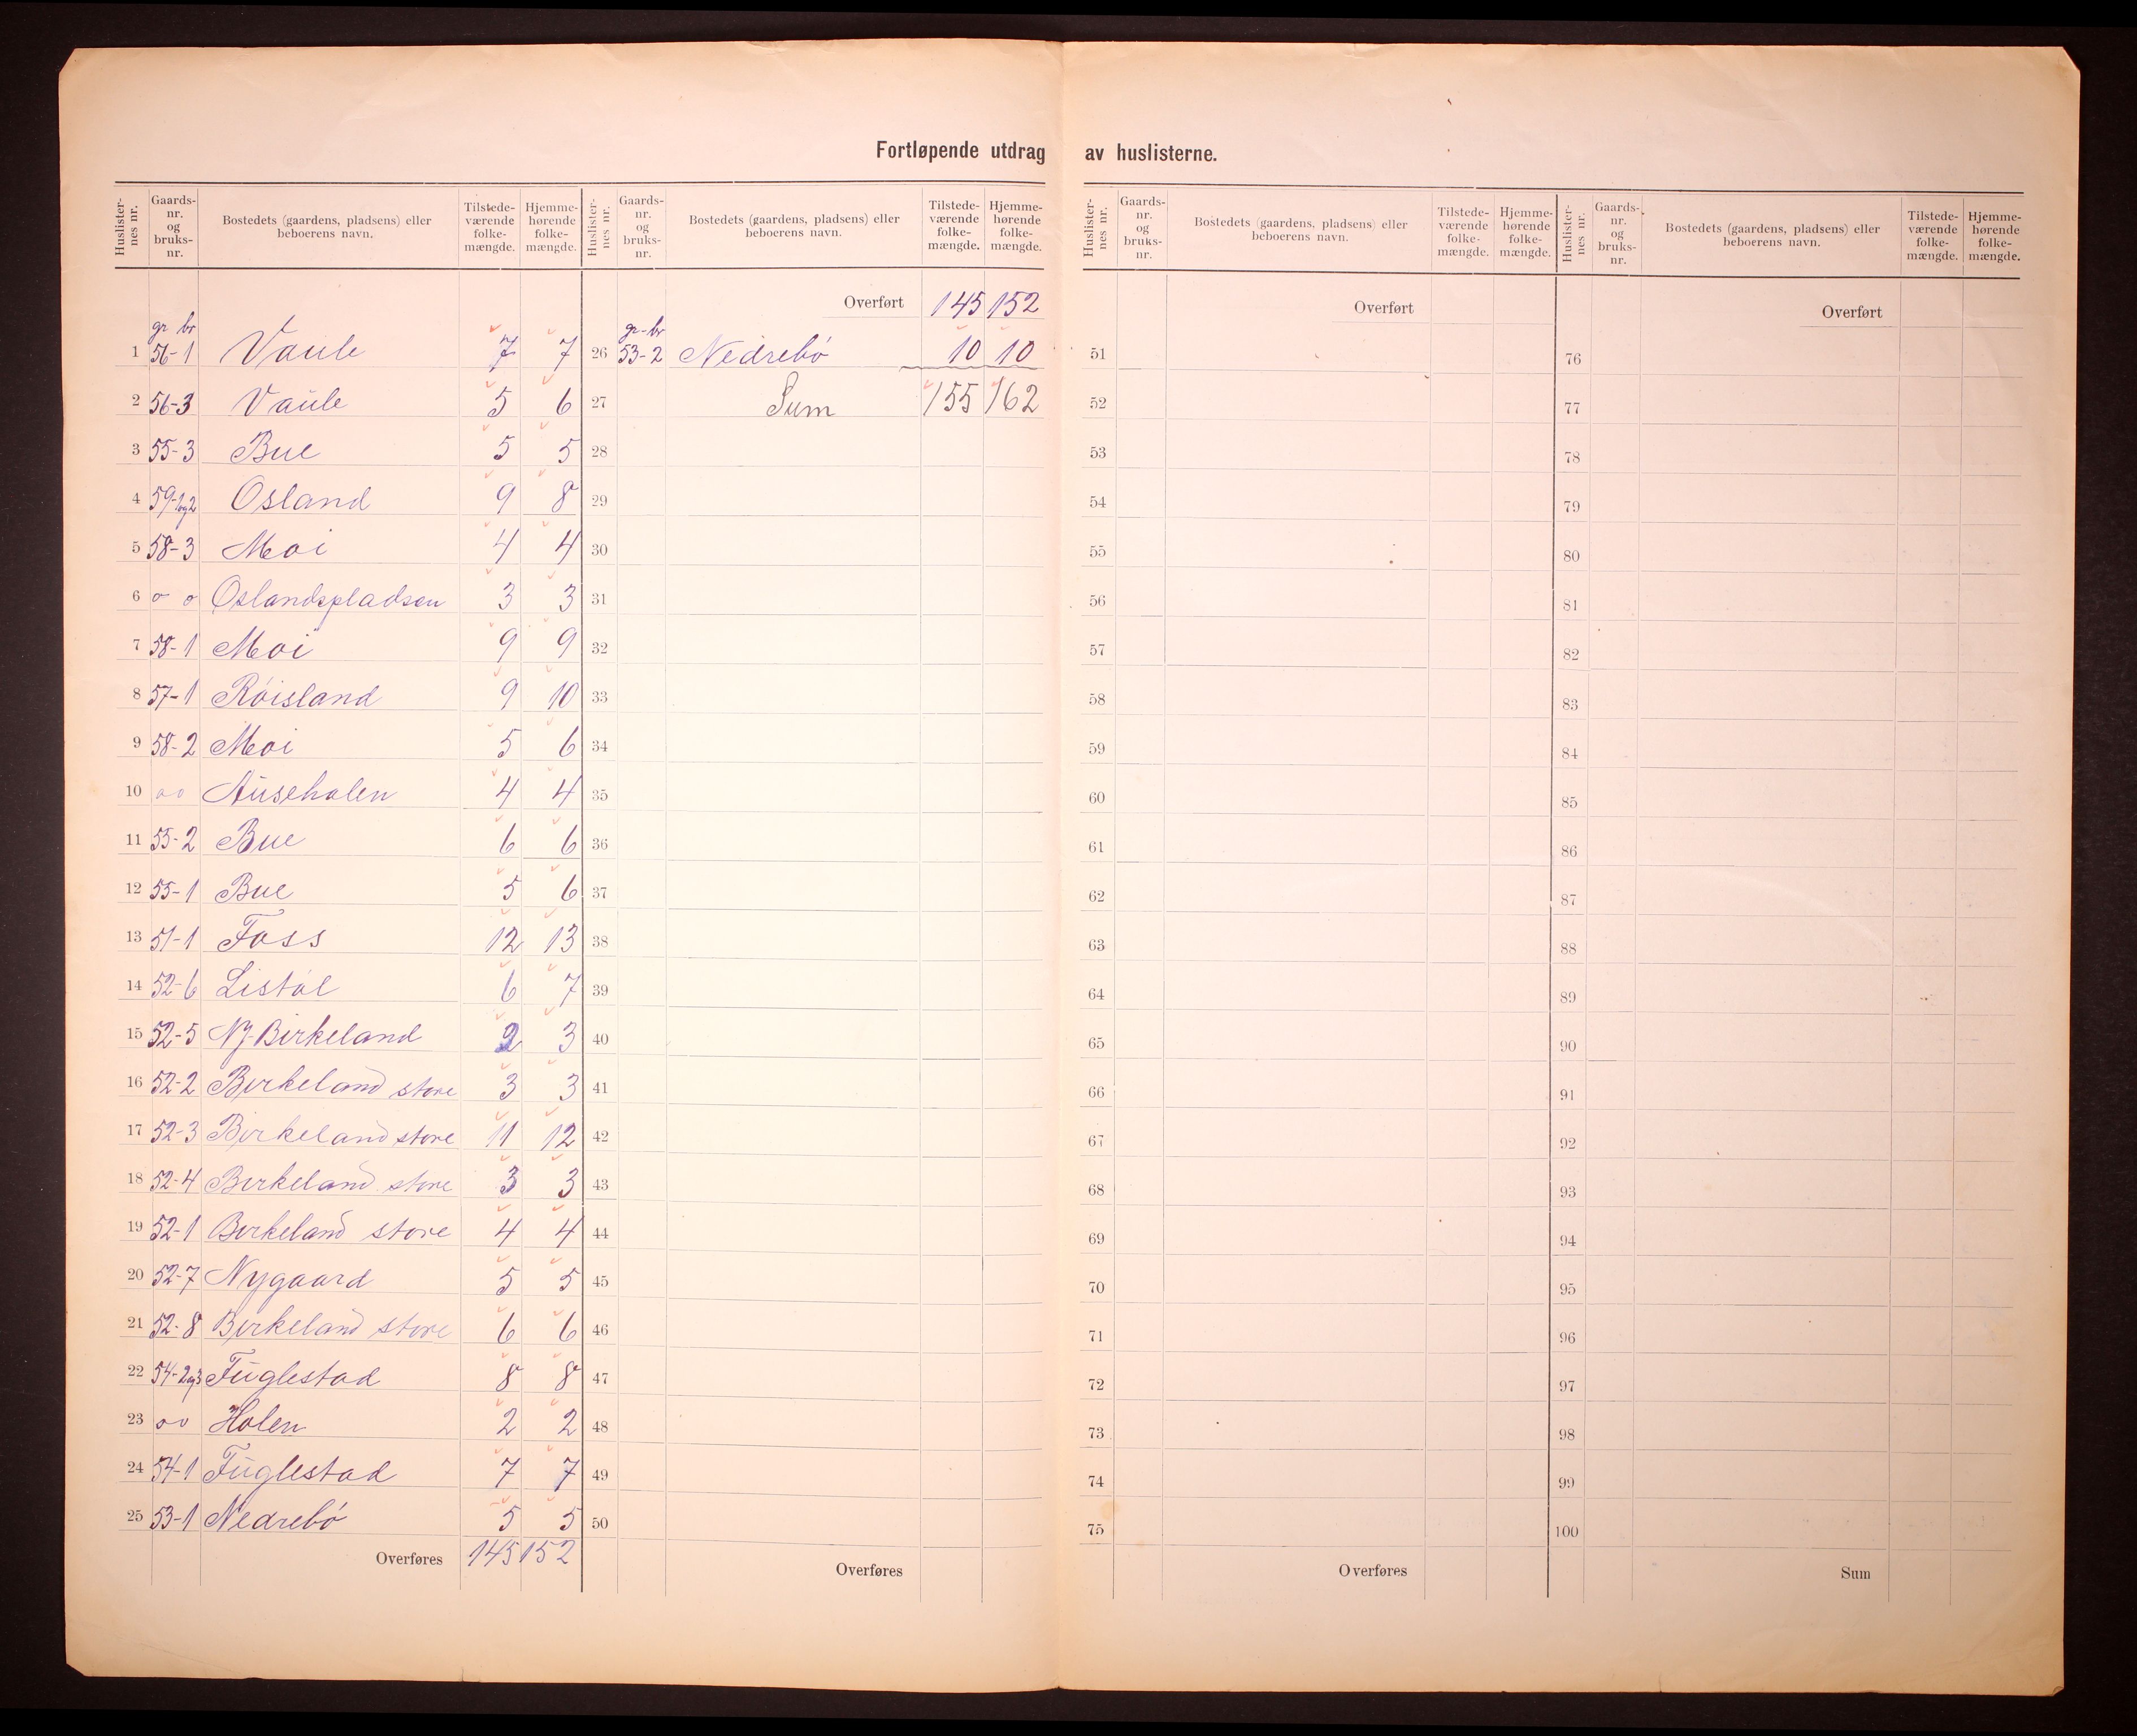 Fortløpende utdrag av huslisterne.
Huslisternes nr. Gaards-nr. og bruks-nr. Bostedets (gaardens, pladsens) eller beboerens navn. Tilstede-værende folke-mængde. Hjemme-hørende folke-mængde.
gr br
1 56-1 Vaule 7 7
2 56-3 Vaule 5 6
3 55-3 Bue 5 5
4 59-1og2 Osland 9 8
5 58-3 Moi 4 4
6 o o Oslandspladsen 3 3
7 58-1 Moi 9 9
8 57-1 Röisland 9 10
9 58-2 Moi 5 6
10 o o Ausehalen 4 4
11 55-2 Bue 6 6
12 55-1 Bue 5 6
13 51-1 Foss 12 13
14 52-6 Listöl 6 7
15 52-5 Ny-Birkeland 2 3
16 52-2 Birkeland store 3 3
17 52-3 Birkeland store 11 12
18 52-4 Birkeland store 3 3
19 52-1 Birkeland store 4 4
20 52-7 Nygaard 5 5
21 52-8 Birkeland store 6 6
22 54-2og3 Fuglestad 8 8
23 o o Holen 2 2
24 54-1 Fuglestad 7 7
25 53-1 Nedrebö 5 5
Overføres 145 152
Huslisternes nr. Gaards-nr. og bruks-nr. Bostedets (gaardens, pladsens) eller beboerens navn. Tilstede-værende folke-mængde. Hjemme-hørende folke-mængde.
Overført 145 152
gr-br
26 53-2 Nedrebö 10 10
27 Sum 155 162
28
29
30
31
32
33
34
35
36
37
38
39
40
41
42
43
44
45
46
47
48
49
50
Overføres
Huslisternes nr. Gaards-nr. og bruks-nr. Bostedets (gaardens, pladsens) eller beboerens navn. Tilstede-værende folke-mængde. Hjemme-hørende folke-mængde.
Overført
51
52
53
54
55
56
57
58
59
60
61
62
63
64
65
66
67
68
69
70
71
72
73
74
75
Overføres
Huslisternes nr. Gaards-nr. og bruks-nr. Bostedets (gaardens, pladsens) eller beboerens navn. Tilstede-værende folke-mængde. Hjemme-hørende folke-mængde.
Overført
76
77
78
79
80
81
82
83
84
85
86
87
88
89
90
91
92
93
94
95
96
97
98
99
100
Sum